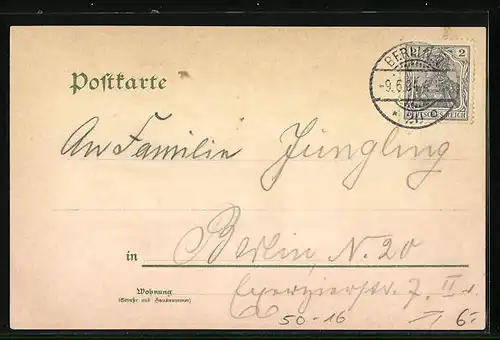 BERLIN
2
-9.6.04
Postkarte
An Familie Jüngling
in Berlin, N. 20
Wohnung
(Straße und Hausnummer)
Exerzierstr. 7. II
50-16
6-